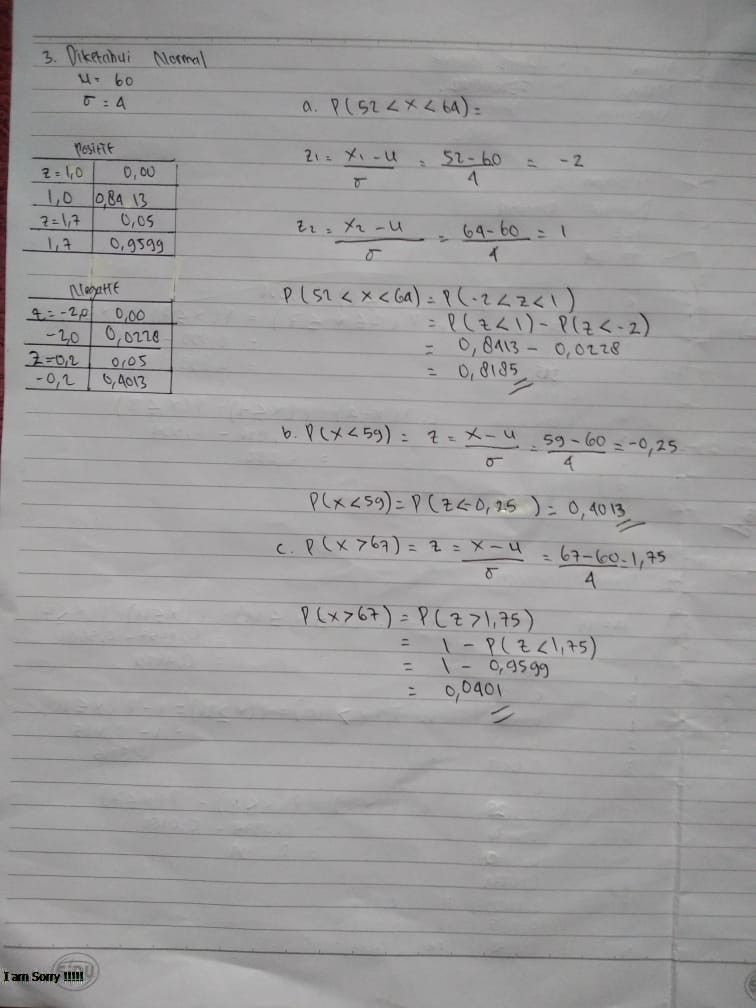 3. Diketahui Normal
μ = 60
σ = 4
Positif
z = 1,0 | 0,00
1,0 | 0,8413
z = 1,7 | 0,05
1,7 | 0,9599
Negatif
z = -2,0 | 0,00
-2,0 | 0,0228
z = -0,2 | 0,05
-0,2 | 0,4013
a. P(52 < x < 64) =
z1 = x1 - μ / σ = 52 - 60 / 4 = -2
z2 = x2 - μ / σ = 64 - 60 / 4 = 1
P(52 < x < 64) = P(-2 < z < 1)
= P(z < 1) - P(z < -2)
= 0,8413 - 0,0228
= 0,8185
b. P(x < 59) = z = x - μ / σ = 59 - 60 / 4 = -0,25
P(x < 59) = P(z < -0,25) = 0,4013
c. P(x > 67) = z = x - μ / σ = 67 - 60 / 4 = 1,75
P(x > 67) = P(z > 1,75)
= 1 - P(z < 1,75)
= 1 - 0,9599
= 0,0401
I am Sorry !!!!!
SIDU